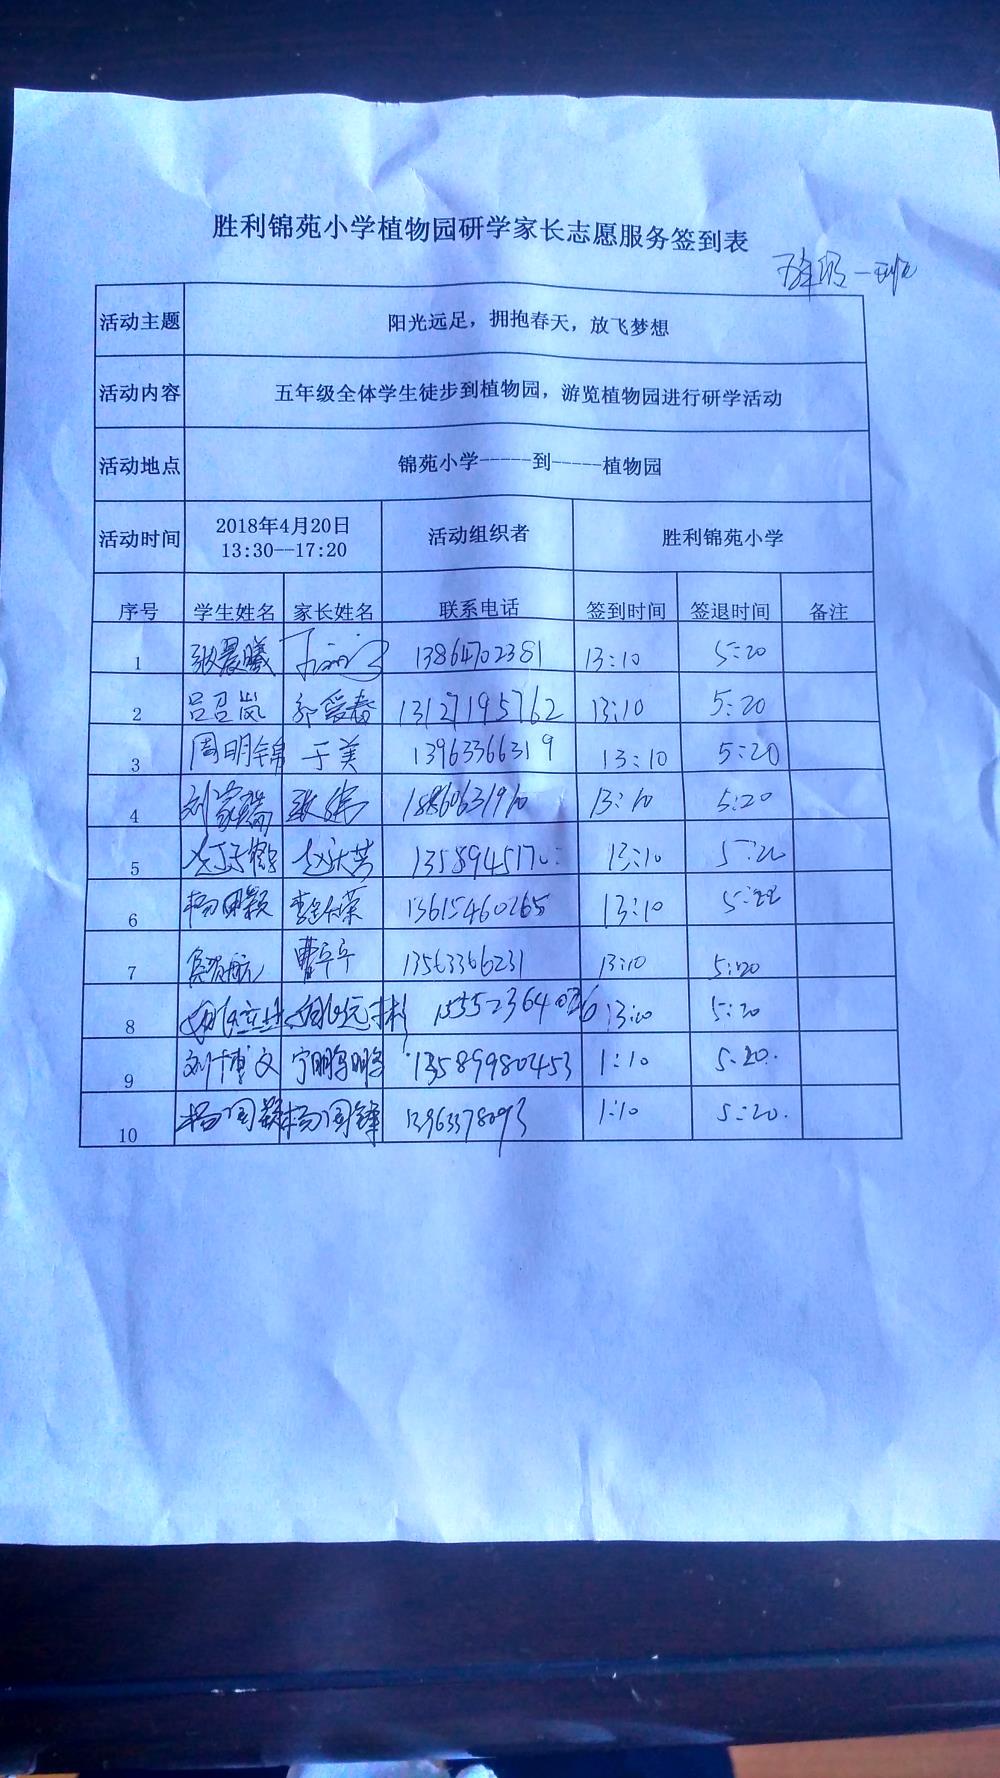 胜利锦苑小学植物园研学家长志愿服务签到表
五年级一班
活动主题 阳光远足，拥抱春天，放飞梦想
活动内容 五年级全体学生徒步到植物园，游览植物园进行研学活动
活动地点 锦苑小学-----到-----植物园
活动时间 2018年4月20日 13:30--17:20 活动组织者 胜利锦苑小学
序号 学生姓名 家长姓名 联系电话 签到时间 签退时间 备注
1 张晨曦 13864702381 13:10 5:20
2 吕召岚 郭爱春 13127195762 13:10 5:20
3 周明锦 于美 13963366319 13:10 5:20
4 刘家瑞 张伟 13:10 5:20
5 13:10 5:20
6 13615460265 13:10
7 曹平平 13563366231 13:10 5:20
8 5:20
9 刘博文 13589980453 1:10 5:20.
10 杨国锋 1:10 5:20.